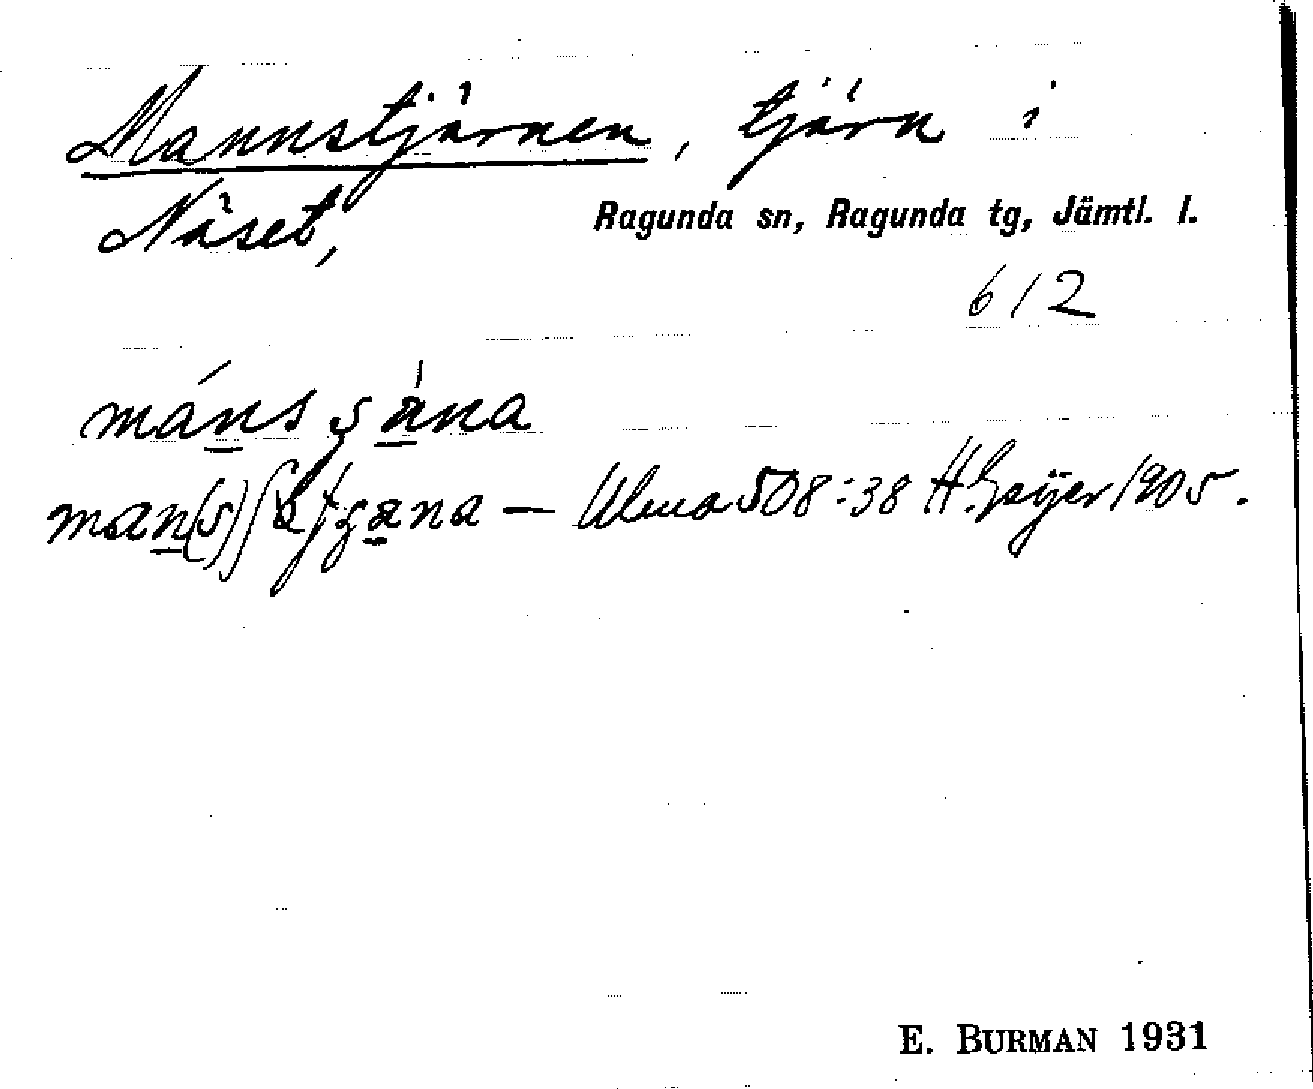 Mannstjärnen, tjärn i
Näset, Ragunda sn, Ragunda tg, Jämtl. l.
612
máns şána
Ulma 508:38 H. Geijer 1905.
E. BURMAN 1931